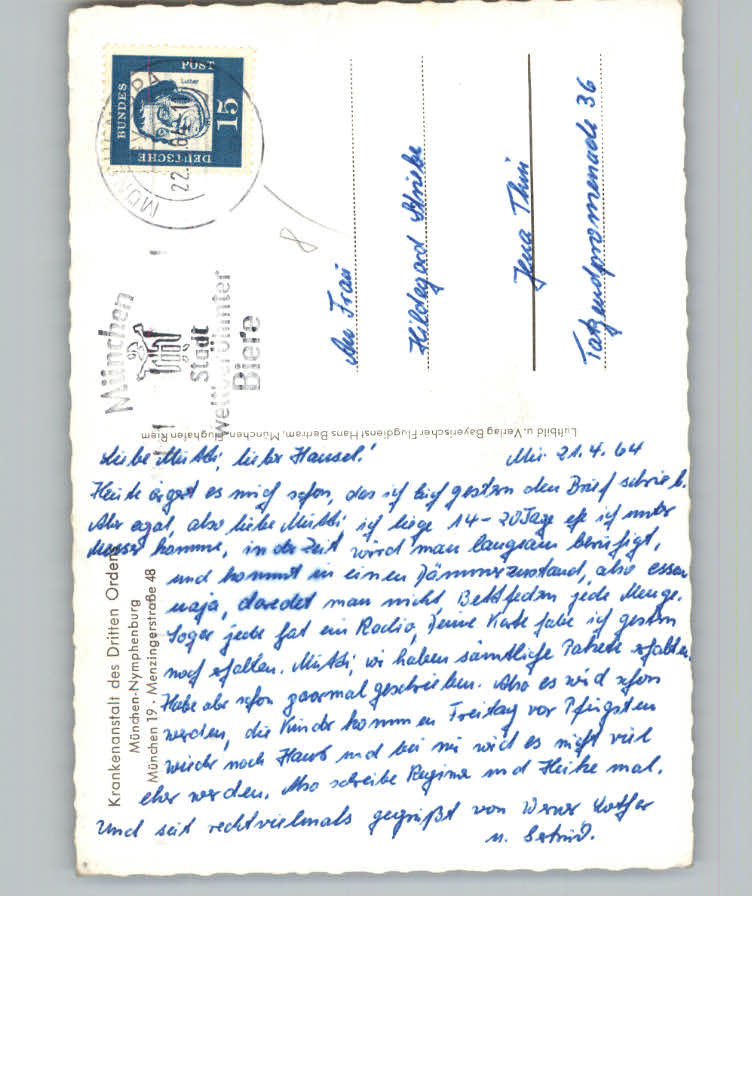 DEUTSCHE
BUNDES
POST
15
Luther
MÜNCHEN
22.
64
München
Stadt
weltberühmter
Biere
8
An Frau
Hildegard
Jena Thür
Tatzendpromenade 36
Luftbild u. Verlag Bayerischer Flugdienst Hans Bertram, München-Flughafen Riem
Krankenanstalt des Dritten Ordens
München-Nymphenburg
München 19 · Menzingerstraße 48
Liebe Mutti, lieber Hansel! Mü. 21.4.64
Heute ärgert es mich schon, das ich Euch gestern den Brief schrieb.
Aber egal, also liebe Mutti ich liege 14-20 Tage ehe ich unter
Messer komme, in der Zeit wird man langsam beruhigt,
und kommt in einen Dämmerzustand, also essen
naja, man nicht Bettfedern jede Menge.
Sogar jede hat ein Radio, Deine Karte habe ich gestern
noch erhalten. Mutti, wir haben sämtliche Pakete erhalten.
Habe aber schon paarmal geschrieben. Also es wird schon
werden, die Kinder kommen Freitag vor Pfingsten
wieder nach Haus und bei mir wird es nicht viel
eher werden. Also schreibe Regina und Heike mal.
Und seit recht vielmals gegrüßt von Werner Lothar
u.